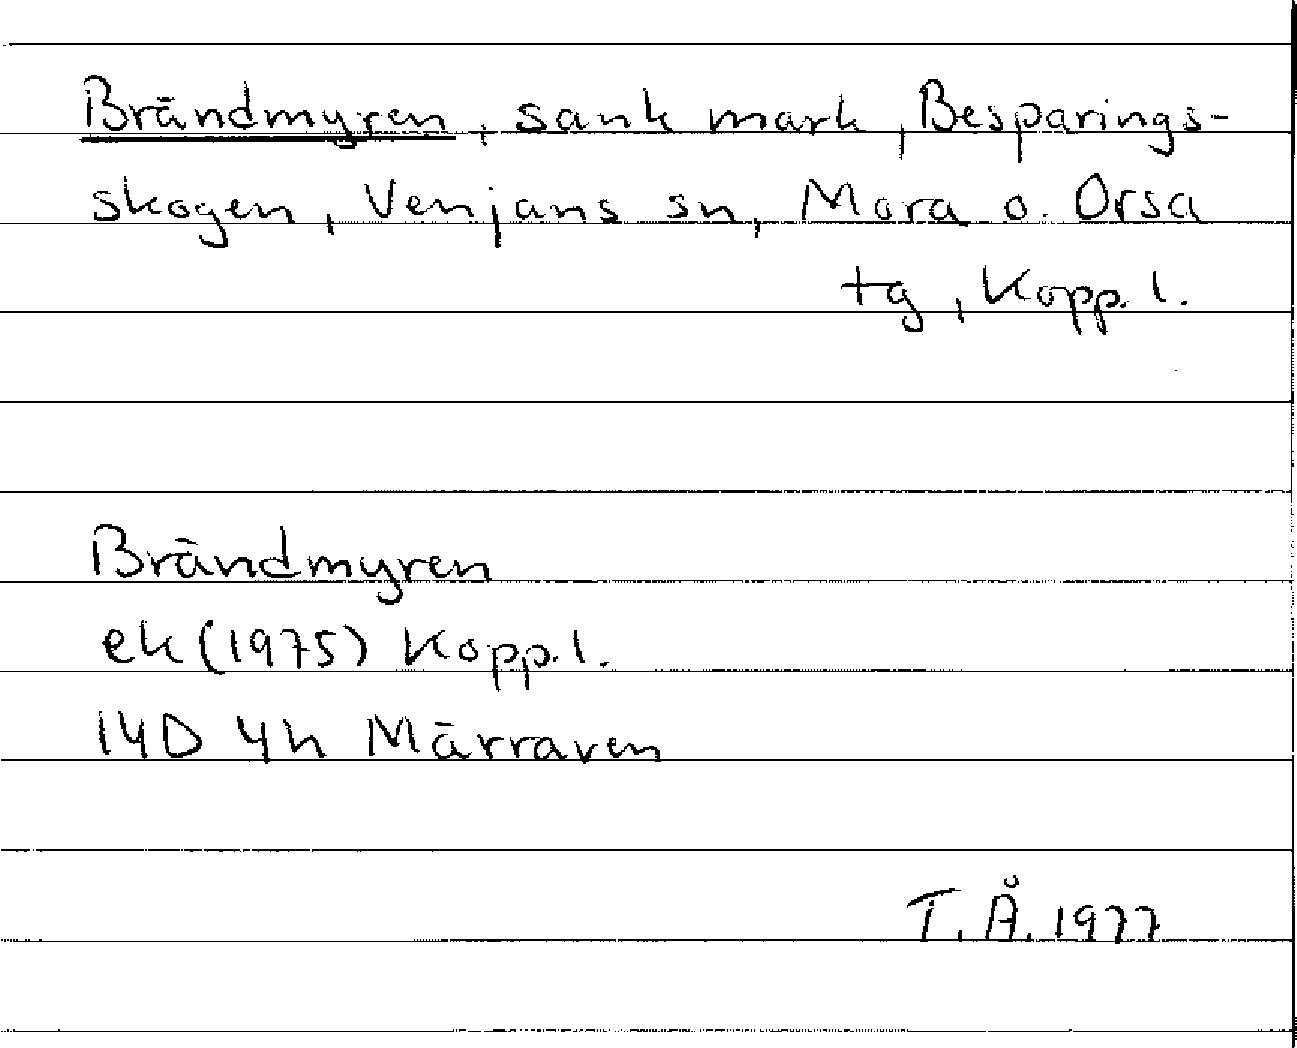 Brändmyren, sank mark, Besparings-
skogen, Venjans sn, Mora o. Orsa
tg, Kopp. l.
Brändmyren
ek (1975) Kopp. l.
14D 4h Märraven
T. Å. 1977